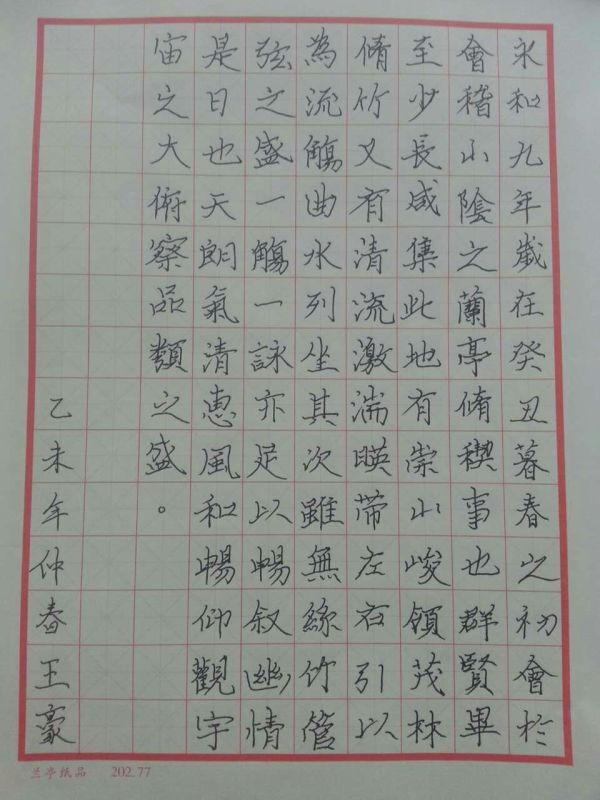 永和九年歲在癸丑暮春之初會於
會稽山陰之蘭亭脩稧事也群賢畢
至少長咸集此地有崇山峻領茂林
脩竹又有清流激湍暎帶左右引以
為流觴曲水列坐其次雖無絲竹管
弦之盛一觴一詠亦足以暢叙幽情
是日也天朗氣清惠風和暢仰觀宇
宙之大俯察品類之盛。
乙未年仲春王豪
兰亭纸品 202.77